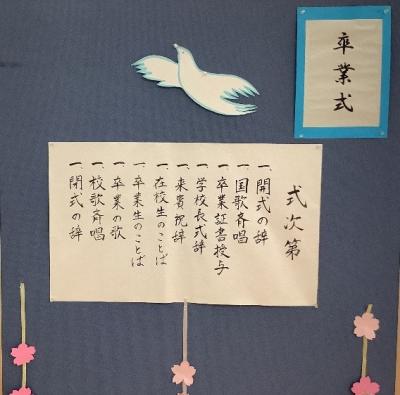 卒業式
式次第
一、開式の辞
一、国歌斉唱
一、卒業証書授与
一、学校長式辞
一、来賓祝辞
一、在校生のことば
一、卒業生のことば
一、卒業の歌
一、校歌斉唱
一、閉式の辞